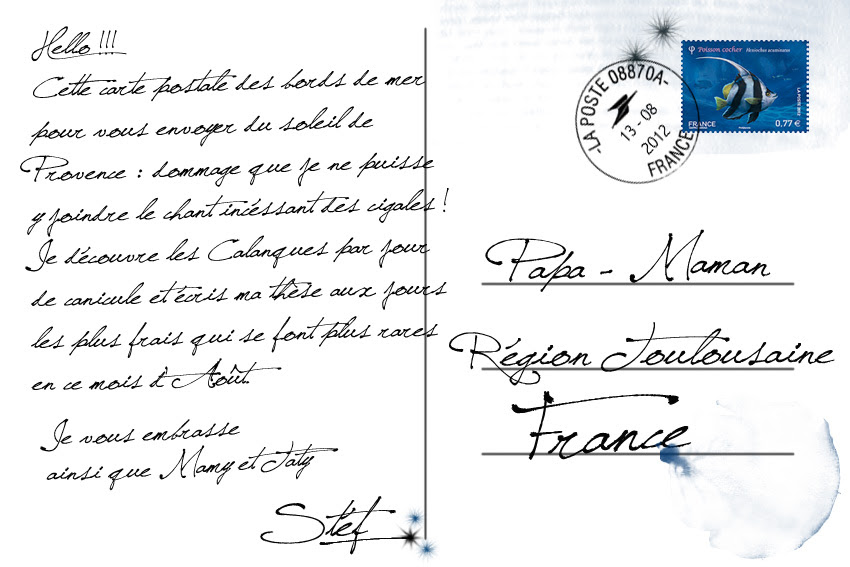 Hello !!!
Cette carte postale des bords de mer
pour vous envoyer du soleil de
Provence : dommage que je ne puisse
y joindre le chant incéssant des cigales !
Je découvre les Calanques par jour
de canicule et écris ma thèse aux jours
les plus frais qui se font plus rares
en ce mois d'Août.
Je vous embrasse
ainsi que Mamy et Taty
Stéf
Poisson cocher
Heniochus acuminatus
LA POSTE 2012
FRANCE
0.77 €
-LA POSTE 08870A-
13-08
2012
FRANCE
Papa - Maman
Région Toulousaine
France